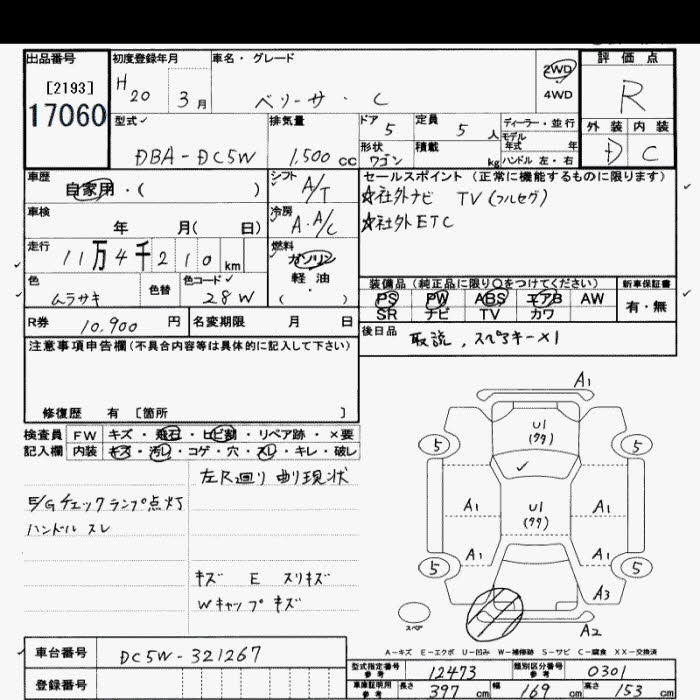 出品番号
[2193]
17060
初度登録年月
H20 3月
車名・グレード
ベリーサ・C
2WD
4WD
評価点
R
外装 内装
D C
型式
DBA-DC5W
排気量
1,500 cc
ドア 5
定員 5人
ディーラー・並行
モデル年式 年
形状 ワゴン
積載 kg
ハンドル 左・右
車歴
自家用・( )
シフト A/T
セールスポイント(正常に機能するものに限ります)
☆社外ナビ TV(フルセグ)
☆社外ETC
車検
年 月( 日)
冷房 A・A/C
走行
11万4千210km
燃料
ガソリン
軽油
( )
色
ムラサキ
色替
色コード
28W
装備品(純正品に限り○をつけてください)
新車保証書
PS PW ABS エアB AW
SR ナビ TV カワ
有・無
R券 10,900円
名変期限 月 日
後日品 取説,スペアキー×1
注意事項申告欄(不具合内容等は具体的に記入して下さい)
修復歴 有 [箇所 ]
検査員 FW キズ・飛石・ヒビ割・リペア跡・×要
記入欄 内装 キズ・汚レ・コゲ・穴・スレ・キレ・破レ
左R廻り曲り現状
E/Gチェックランプ点灯
ハンドルスレ
キズ E スリキズ
Wキャップキズ
A1
U1
(ワワ)
5 5
A1 U1 A1
(ワワ)
A1 A1
5 5
A3
スペア
A2
A-キズ E-エクボ U-凹み W-補修跡 S-サビ C-腐食 XX-交換済
車台番号 DC5W-321267
登録番号
型式指定番号 参考 12473
類別区分番号 参考 0301
車庫証明用 参考 長さ 397cm 幅 169cm 高さ 153cm